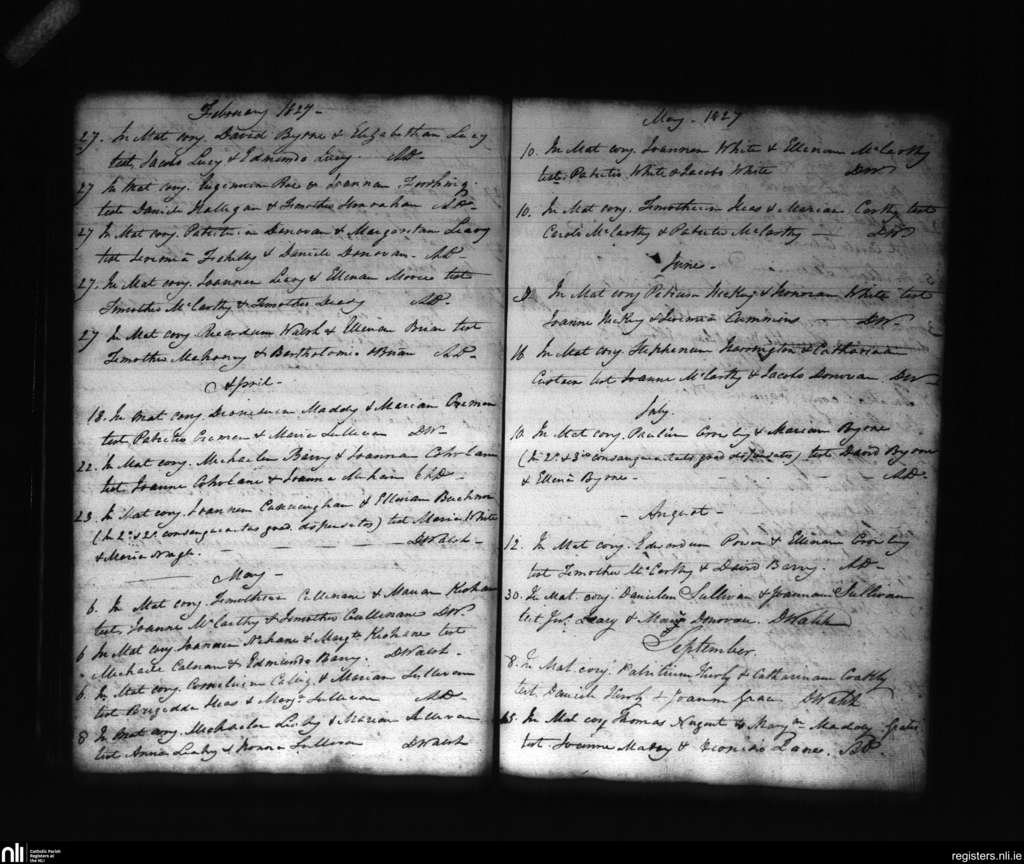 February 1827 -
27. In Mat conj. David Byrne & Elizabetham Lucy
test. Jacobo Lucy & Edmundo Lucy. AD-
27 In Mat conj. Eugenium Roe & Joannam
test Daniele Hallegan & Timotheo Hanrahan AD-
27 In Mat conj. Patritium Donovan & Margaritam Leary
test Jeremia & Daniele Donovan. AD-
27. In Mat conj. Joannem Leary & Ellenam Moore test
Timotheo McCarthy & Timotheo Leary AD-
27 In Mat conj Ricardum Walsh & Ellenam Brien test
Timotheo Mahoney & Bartholomeo OBrien AD-
April -
18. In Mat conj Dionisium Maddy & Mariam Cremen
test Patritio Cremen & Maria Sullivan DW-
22. In Mat conj. Michaelem Barry & Joannam Coholane
test Joanne Coholane & Joanna Mehain AD-
23. In Mat conj. Joannem Cunningham & Ellenam
(In 2o & 2o consanguinitatis grad. dispensatos) test Maria White
& Maria Nagle. DWalsh -
May -
6. In Mat conj. Timotheum Cullinane & Mariam Keohane
test. Joanne McCarthy & Timotheo Cullinane DW
6 In Mat conj Joannem & Margt. Keohane test
Michaele Calnan & Edmundo Barry. DWalsh -
6. In Mat conj. Cornelium & Mariam Sullivan
test Brigidda Heas & Mary Sullivan AD
8 In Mat conj. Michaelem Leahy & Mariam Sullivan
test Anna Leahy & Honora Sullivan DWalsh
May - 1827
10. In Mat conj. Joannem White & Ellenam McCarthy
test. Patritio White & Jacobo White DW
10. In Mat conj. Timotheum Heas & Mariam Carthy test
Carolo McCarthy & Patritio McCarthy - DW
June -
9. In Mat conj Patrium Hickey & Honoram White test
Joanne Hickey & Jeremia Cummins - DW-
16 In Mat conj. Stephenum Harrington & Catharina
Curtain test Joanne McCarthy & Jacobo Donovan. DW-
July.
10. In Mat conj. Paulum Crowley & Mariam Byrne
(In 2o. & 3o consanguinitatis grad dispensatos) test David Byrne
& Ellena Byrne - AD-
- August -
12. In Mat conj. Edmundum Power & Ellenam Crowley
test Timotheo McCarthy & David Barry. AD-
30. In Mat. conj. Danielem Sullivan & Joannam Sullivan
test Jno. Leary & Mary Donovan. DWalsh
September.
8. In Mat. conj. Patritium Hurly & Catharinam Coakly
test Daniele Hurly & Joanna DWalsh
15. In Mat conj Thomas Nugent & Maryam Maddy Gratis
test. Joanne Maddy & Lane. AD.
nli
Catholic Parish
Registers at
the NLI
registers.nli.ie